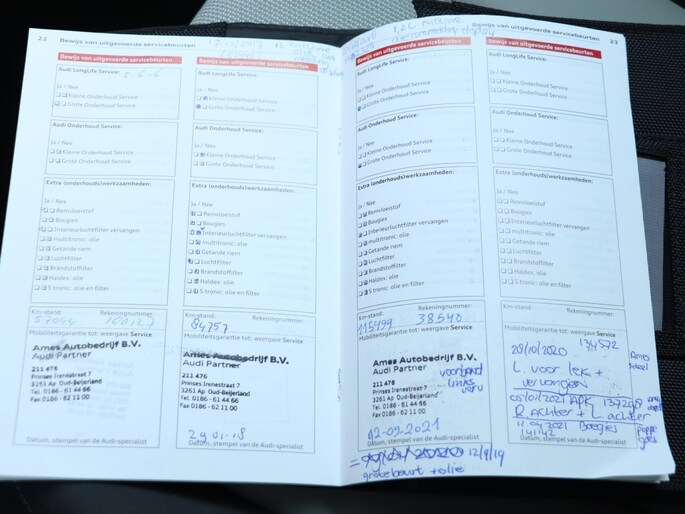 22 Bewijs van uitgevoerde servicebeurten
Bewijs van uitgevoerde servicebeurten
Audi LongLife Service:
Ja / Nee
Kleine Onderhoud Service
Grote Onderhoud Service
Audi Onderhoud Service:
Ja / Nee
Kleine Onderhoud Service
Grote Onderhoud Service
Extra (onderhouds)werkzaamheden:
Ja / Nee
Remvloeistof
Bougies
Interieurluchtfilter vervangen
multitronic: olie
Getande riem
Luchtfilter
Brandstoffilter
Haldex: olie
S tronic: olie en filter
Km-stand: Rekeningnummer:
57044 100127
Mobiliteitsgarantie tot: weergave Service
Ames Autobedrijf B.V.
Audi Partner
211 476
Prinses Irenestraat 7
3261 Ap Oud-Beijerland
Tel. 0186 - 61 44 66
Fax 0186 - 62 11 00
Datum, stempel van de Audi-specialist
Bewijs van uitgevoerde servicebeurten
Audi LongLife Service:
Ja / Nee
Kleine Onderhoud Service
Grote Onderhoud Service
Audi Onderhoud Service:
Ja / Nee
Kleine Onderhoud Service
Grote Onderhoud Service
Extra (onderhouds)werkzaamheden:
Ja / Nee
Remvloeistof
Bougies
Interieurluchtfilter vervangen
multitronic: olie
Getande riem
Luchtfilter
Brandstoffilter
Haldex: olie
S tronic: olie en filter
Km-stand: Rekeningnummer:
84757
Mobiliteitsgarantie tot: weergave Service
Ames Autobedrijf B.V.
Audi Partner
211 476
Prinses Irenestraat 7
3261 Ap Oud-Beijerland
Tel. 0186 - 61 44 66
Fax 0186 - 62 11 00
29-01-18
Datum, stempel van de Audi-specialist
Bewijs van uitgevoerde servicebeurten 23
Bewijs van uitgevoerde servicebeurten
Audi LongLife Service:
Ja / Nee
Kleine Onderhoud Service
Grote Onderhoud Service
Audi Onderhoud Service:
Ja / Nee
Kleine Onderhoud Service
Grote Onderhoud Service
Extra (onderhouds)werkzaamheden:
Ja / Nee
Remvloeistof
Bougies
Interieurluchtfilter vervangen
multitronic: olie
Getande riem
Luchtfilter
Brandstoffilter
Haldex: olie
S tronic: olie en filter
Km-stand: Rekeningnummer:
115499 38540
Mobiliteitsgarantie tot: weergave Service
Ames Autobedrijf B.V.
Audi Partner
211 476 voorband
Prinses Irenestraat 7 links
3261 Ap Oud-Beijerland
Tel. 0186 - 61 44 66
Fax 0186 - 62 11 00
12-09-2021
Datum, stempel van de Audi-specialist
12/9/19
grote beurt + olie
Bewijs van uitgevoerde servicebeurten
Audi LongLife Service:
Ja / Nee
Kleine Onderhoud Service
Grote Onderhoud Service
Audi Onderhoud Service:
Ja / Nee
Kleine Onderhoud Service
Grote Onderhoud Service
Extra (onderhouds)werkzaamheden:
Ja / Nee
Remvloeistof
Bougies
Interieurluchtfilter vervangen
multitronic: olie
Getande riem
Luchtfilter
Brandstoffilter
Haldex: olie
S tronic: olie en filter
Km-stand: Rekeningnummer:
Mobiliteitsgarantie tot: weergave Service
134572
28/10/2020 Ames
L. voor lek +
vervangen
05/01/2021 APK
R achter + L. achter
Datum, stempel van de Audi-specialist